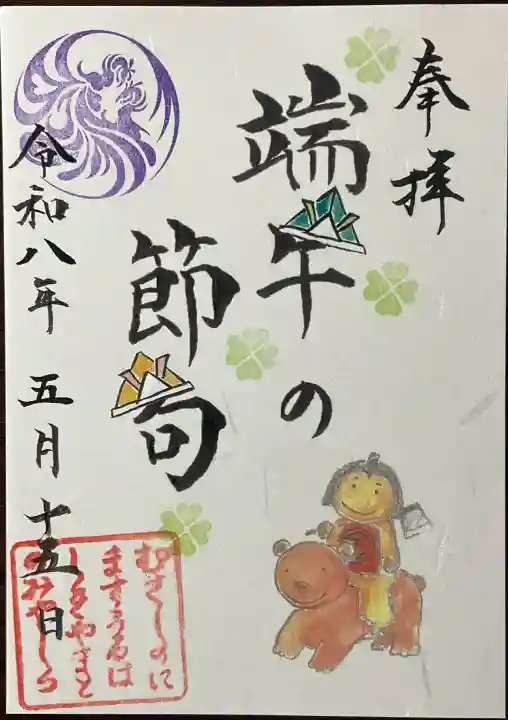 奉拝
端午の
節句
令和八年 五月十五日
むさしのに
ますみるは
しきやまと
のみやしろ